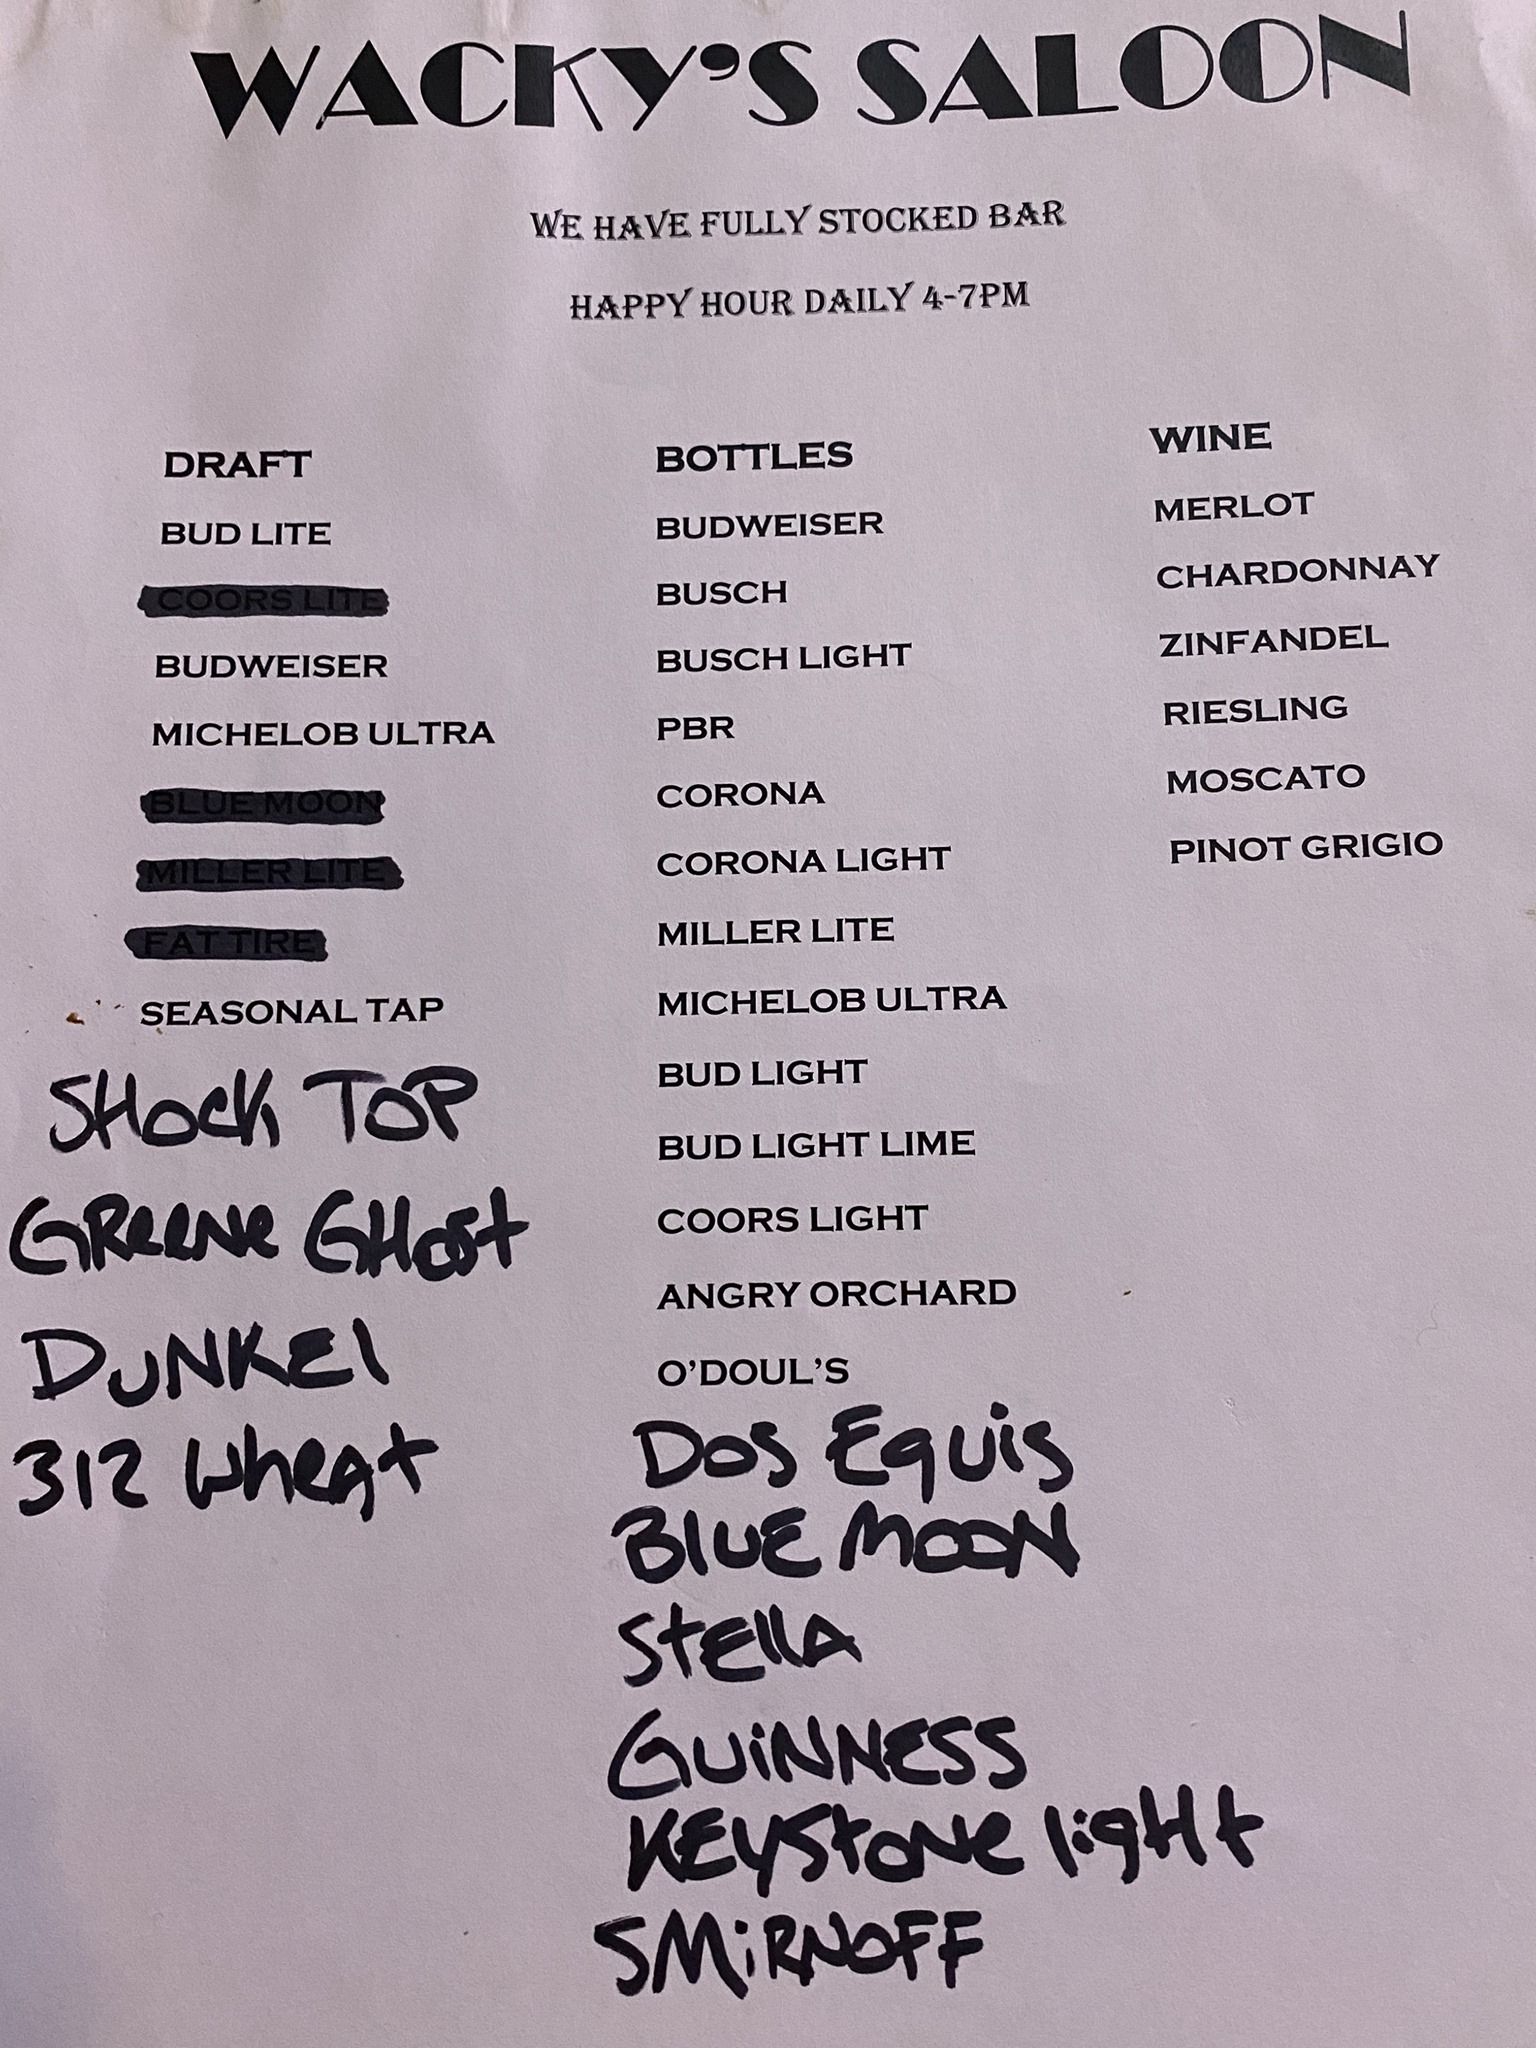 WACKY'S SALOON
WE HAVE FULLY STOCKED BAR
HAPPY HOUR DAILY 4-7PM
DRAFT
BUD LITE
COORS LITE
BUDWEISER
MICHELOB ULTRA
BLUE MOON
MILLER LITE
FAT TIRE
SEASONAL TAP
SHock TOP
GReeNe GHost
DUNKEl
312 Wheat
BOTTLES
BUDWEISER
BUSCH
BUSCH LIGHT
PBR
CORONA
CORONA LIGHT
MILLER LITE
MICHELOB ULTRA
BUD LIGHT
BUD LIGHT LIME
COORS LIGHT
ANGRY ORCHARD
O'DOUL'S
DOS EquiS
BlUE MOON
StEllA
GUiNNESS
KEyStoNe ligHt
SMiRNOFF
WINE
MERLOT
CHARDONNAY
ZINFANDEL
RIESLING
MOSCATO
PINOT GRIGIO